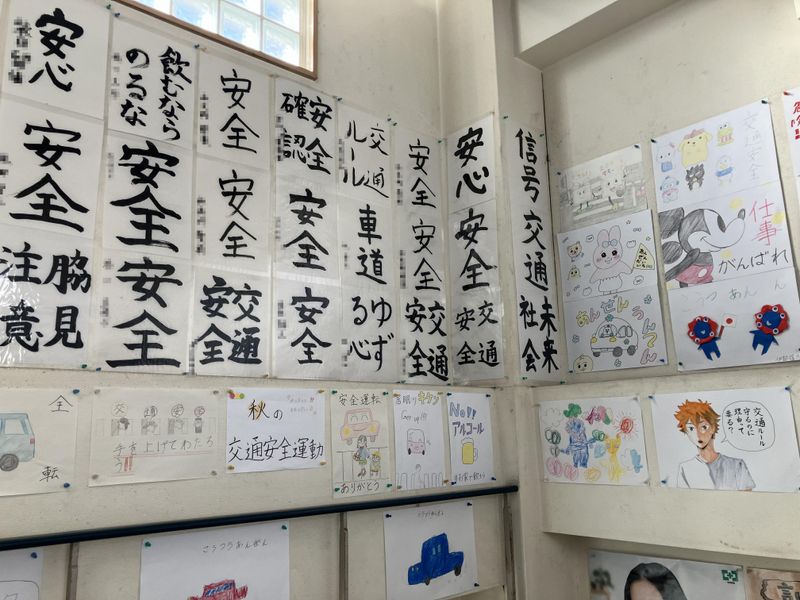 安心
安全
注意
脇見
飲むなら
のるな
安全
安全
安全
安全
交通
安全
安全
確認
安全
安全
交通
ルール
車道
ゆず
る心
安全
安全
交通
安全
安心
安全
交通
安全
信号
交通
社会
未来
全
転
交通安全
手を上げてわたろ
う!!
秋の
交通安全運動
安全運転
ありがとう
居眠りキケン
No!!
アルコール
あんぜん
うんてん
交通安全
仕事
がんばれ
こうつうあんぜん
こうつうあんぜん
交通ルール
守るのに
理由って
要る?